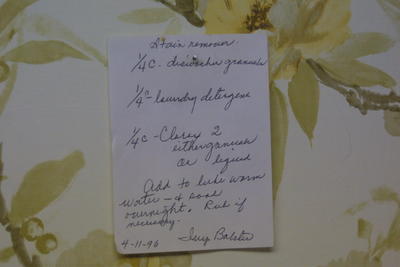 Stain remover.
1/4 c. - diswasher granuals
1/4 c - laundry detergent
1/4 c - Clorox 2
either granuals
or liquid
Add to luke warm
water - & soak
overnight. Rub if
necessary.
4-11-96